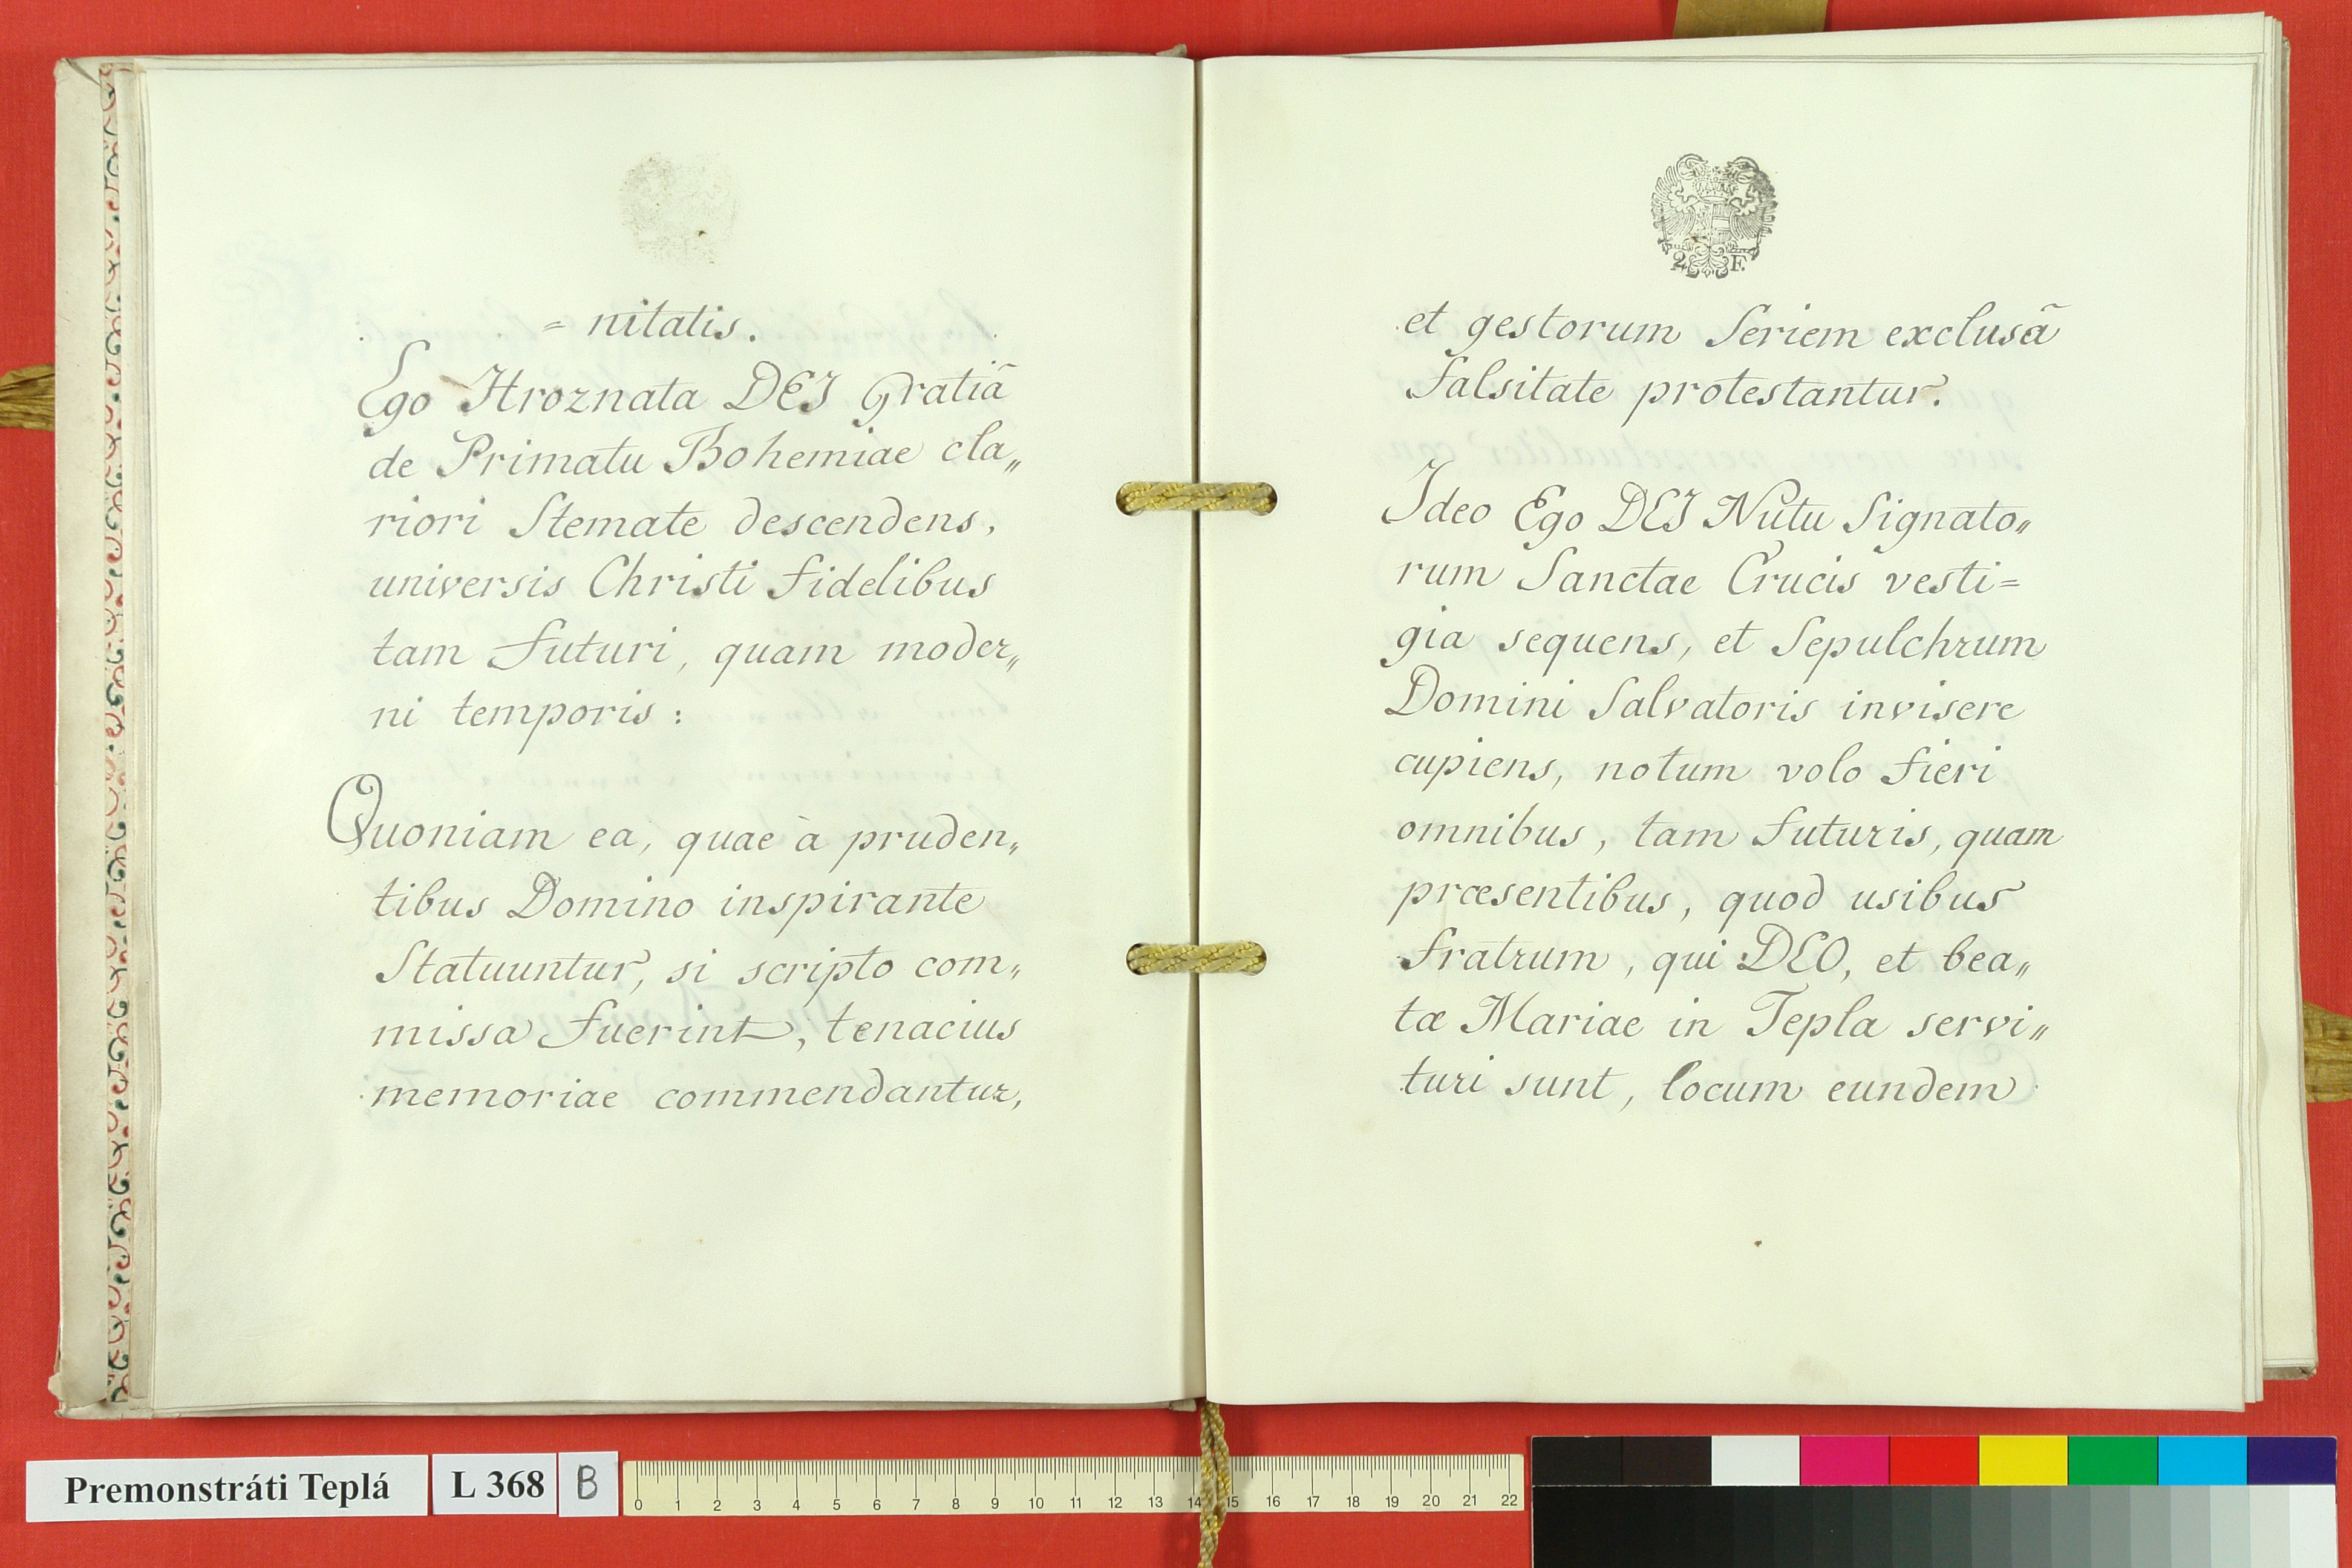 = nitatis.
Ego Hroznata DEI Gratiâ
de Primatu Bohemiae cla„
riori Stemate descendens,
universis Christi fidelibus
tam futuri, quam moder„
ni temporis :
Quoniam ea, quae à pruden„
tibus Domino inspirante
Statuuntur, si scripto com„
missa fuerint, tenacius
memoriae commendantur,
2 F.
et gestorum Seriem exclusâ
falsitate protestantur.
Ideo Ego DEI Nutu Signato„
rum Sanctae Crucis vesti=
gia sequens, et Sepulchrum
Domini Salvatoris invisere
cupiens, notum volo fieri
omnibus, tam futuris, quam
præsentibus, quod usibus
fratrum, qui DEO, et bea„
tæ Mariae in Tepla servi„
turi sunt, locum eundem
Premonstráti Teplá
L 368
B
0 1 2 3 4 5 6 7 8 9 10 11 12 13 14 15 16 17 18 19 20 21 22